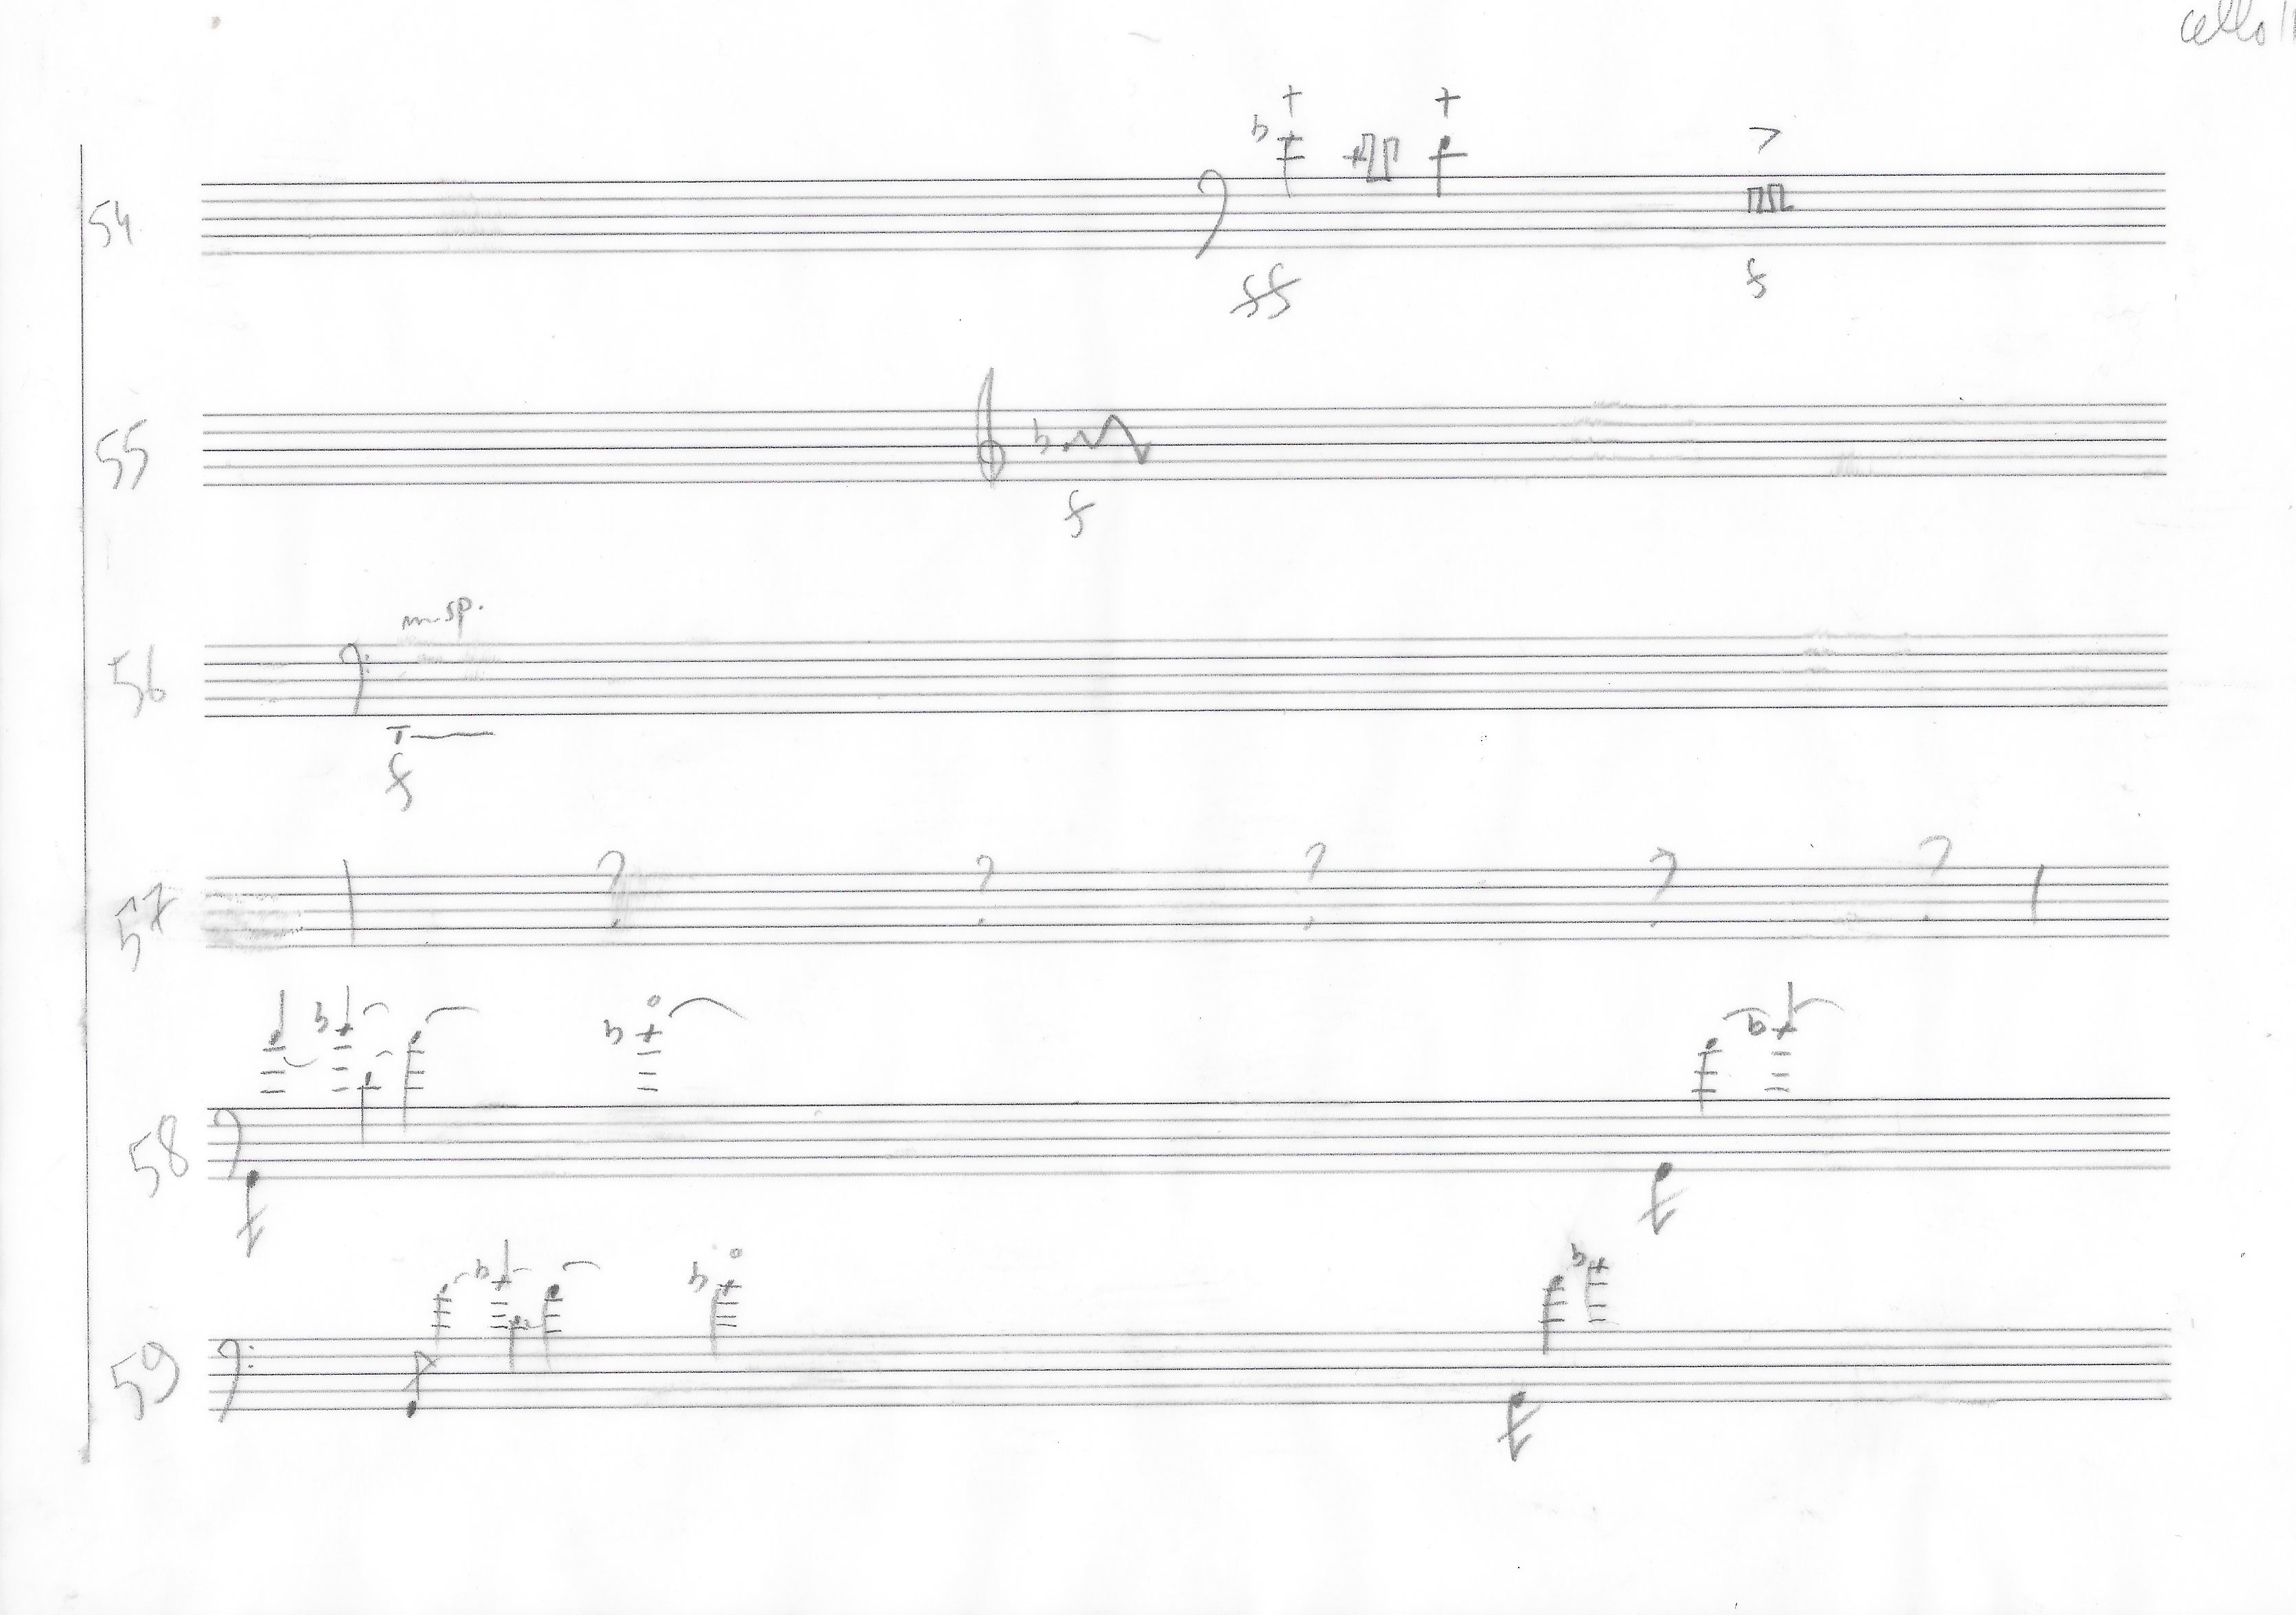 cello
54
ff
f
55
f
56
m sp.
f
57
? ? ? ? ?
58
59